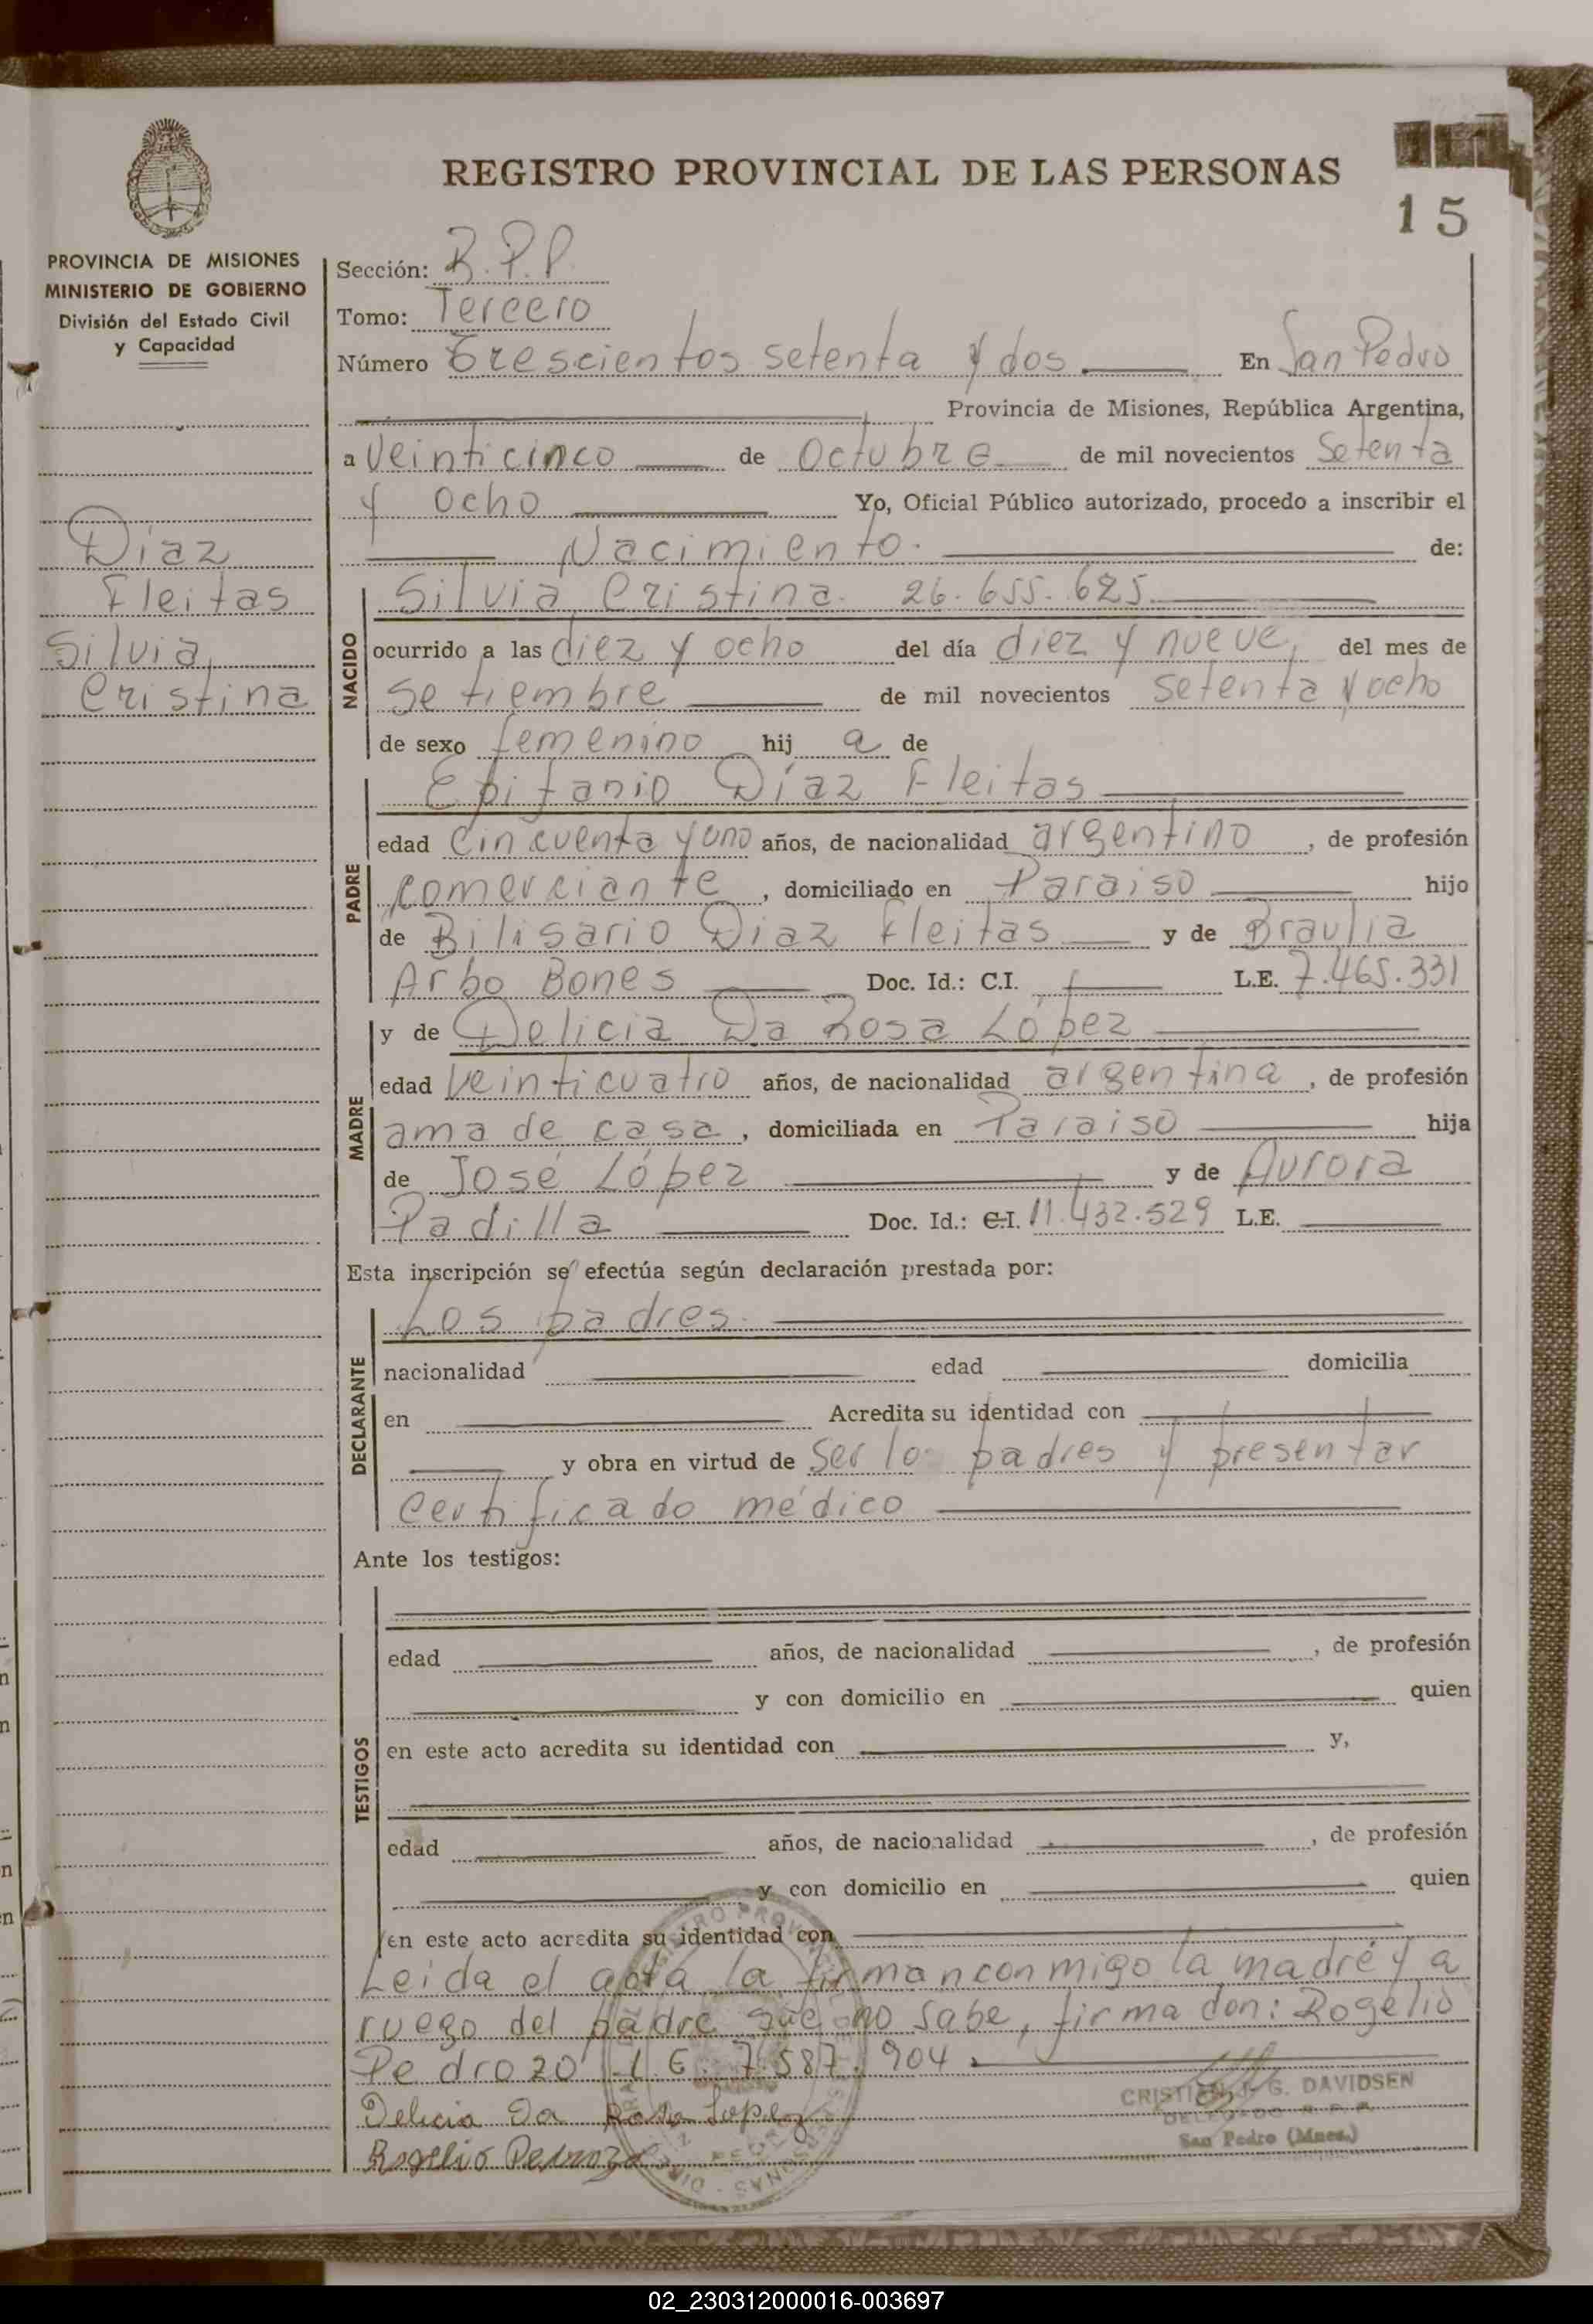 REGISTRO PROVINCIAL DE LAS PERSONAS
15
PROVINCIA DE MISIONES
MINISTERIO DE GOBIERNO
División del Estado Civil
y Capacidad
Díaz
Fleitas
Silvia
Cristina
Sección: R.P.P.
Tomo: Tercero
Número Trescientos setenta y dos En San Pedro
Provincia de Misiones, República Argentina,
a veinticinco de Octubre de mil novecientos setenta
y ocho Yo, Oficial Público autorizado, procedo a inscribir el
Nacimiento. de:
NACIDO
Silvia Cristina. 26.655.625.
ocurrido a las diez y ocho del día diez y nueve, del mes de
setiembre de mil novecientos setenta y ocho
de sexo femenino hij a de
PADRE
Epifanio Díaz Fleitas
edad cincuenta y uno años, de nacionalidad argentino, de profesión
comerciante, domiciliado en Paraiso hijo
de Bilisario Diaz Fleitas y de Braulia
Arbo Bones Doc. Id.: C.I. L.E. 7.465.331
MADRE
y de Delicia Da Rosa López
edad veinticuatro años, de nacionalidad argentina, de profesión
ama de casa, domiciliada en Paraiso hija
de José López y de Aurora
Padilla Doc. Id.: C.I. 11.432.529 L.E.
Esta inscripción se efectúa según declaración prestada por:
DECLARANTE
Los padres.
nacionalidad edad domicilia
en Acredita su identidad con
y obra en virtud de ser lo padres y presentar
certificado médico
Ante los testigos:
TESTIGOS
edad años, de nacionalidad , de profesión
y con domicilio en quien
en este acto acredita su identidad con y,
edad años, de nacionalidad , de profesión
y con domicilio en quien
en este acto acredita su identidad con
Leida el acta la firman conmigo la madre y a
ruego del padre que no sabe, firma don: Rogelio
Pedrozo L.E. 7.587.904
Delicia Da Rosa Lopez
Rogelio Pedrozo
CRISTIAN J. G. DAVIDSEN
DELEGADO R.P.P.
San Pedro (Mnes.)
02_230312000016-003697